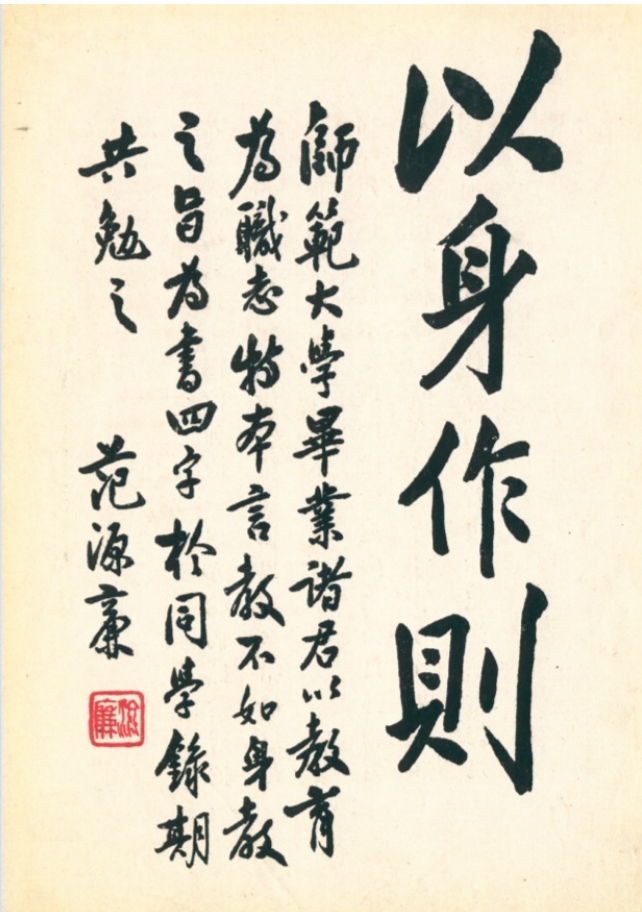 以身作則
師範大學畢業諸君以教育
為職志特本言教不如身教
之旨為書四字於同學錄期
共勉之 范源廉
源廉